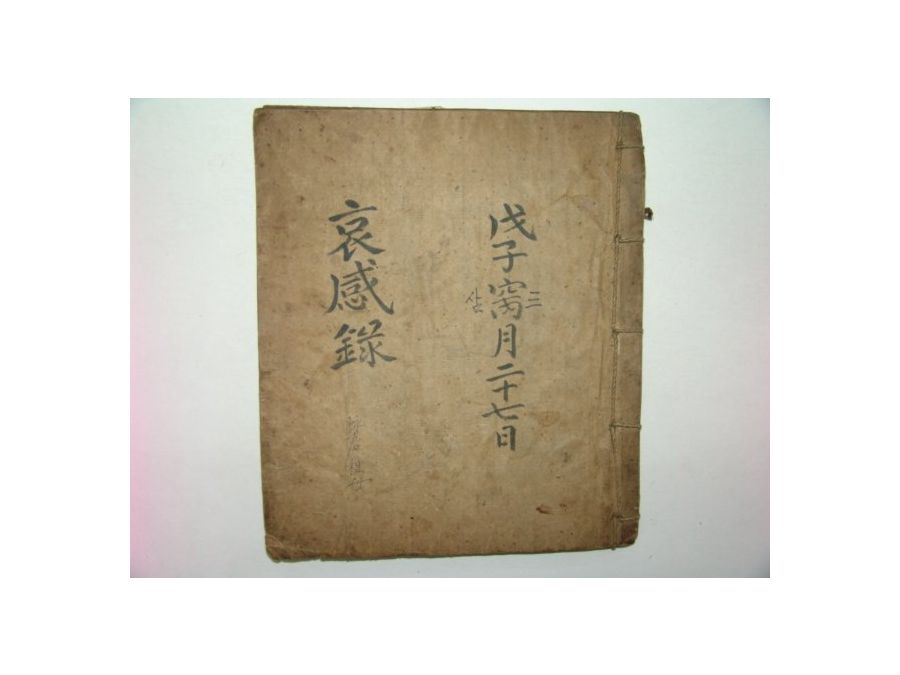 戊子窉月二十七日
三
哀感錄